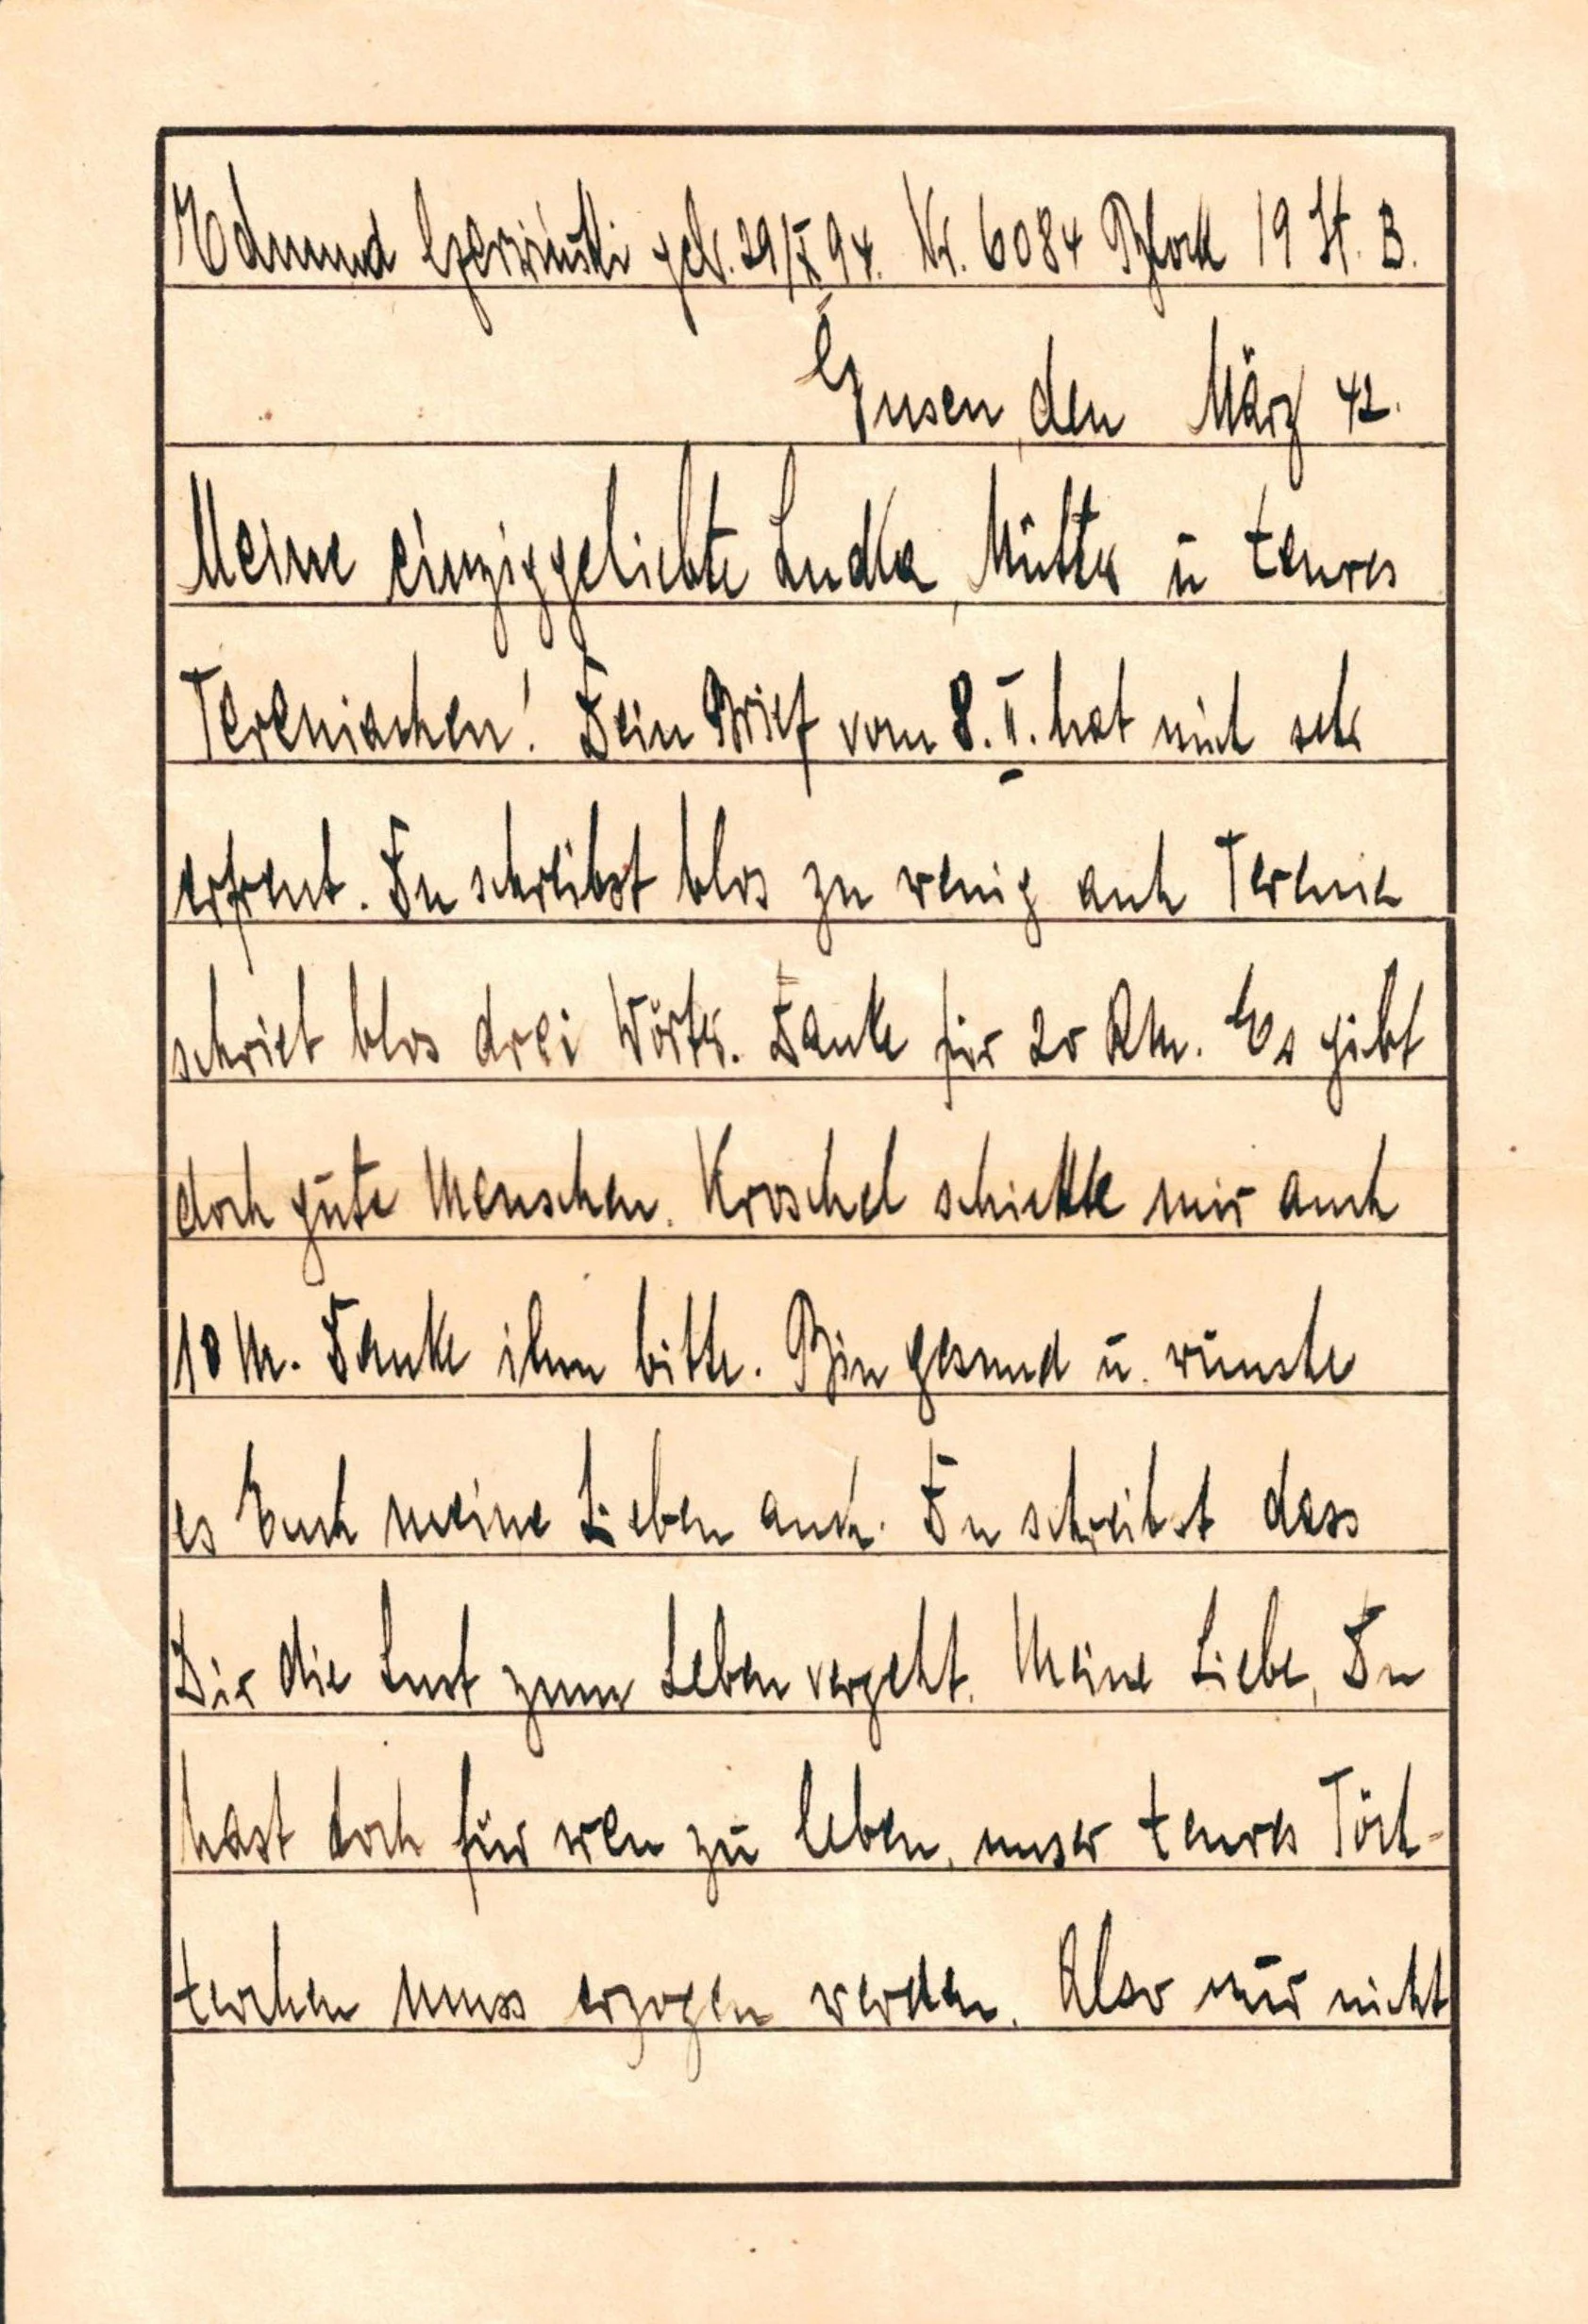 Edmund Czerwiński geb. 29/X 94. Nr. 6084 Block 19 St. B.
Gusen, den März 42.
Meine einziggeliebte Ludka, Mutter u teures
Tereniachen! Dein Brief vom 8. II. hat mich sehr
erfreut. Du schreibst blos zu wenig auch Terenia
schrieb blos drei Wörter. Danke für 20 Rm. Es gibt
doch gute Menschen. Kroschel schickte mir auch
10 M. Danke ihm bitte. Bin gesund u. wünsche
es Euch meine Lieben auch. Du schreibst dass
Dir die Lust zum Leben vergeht. Meine Liebe, Du
hast doch für wen zu leben, unser teures Töch-
terchen muss erzogen werden. Also nur nicht